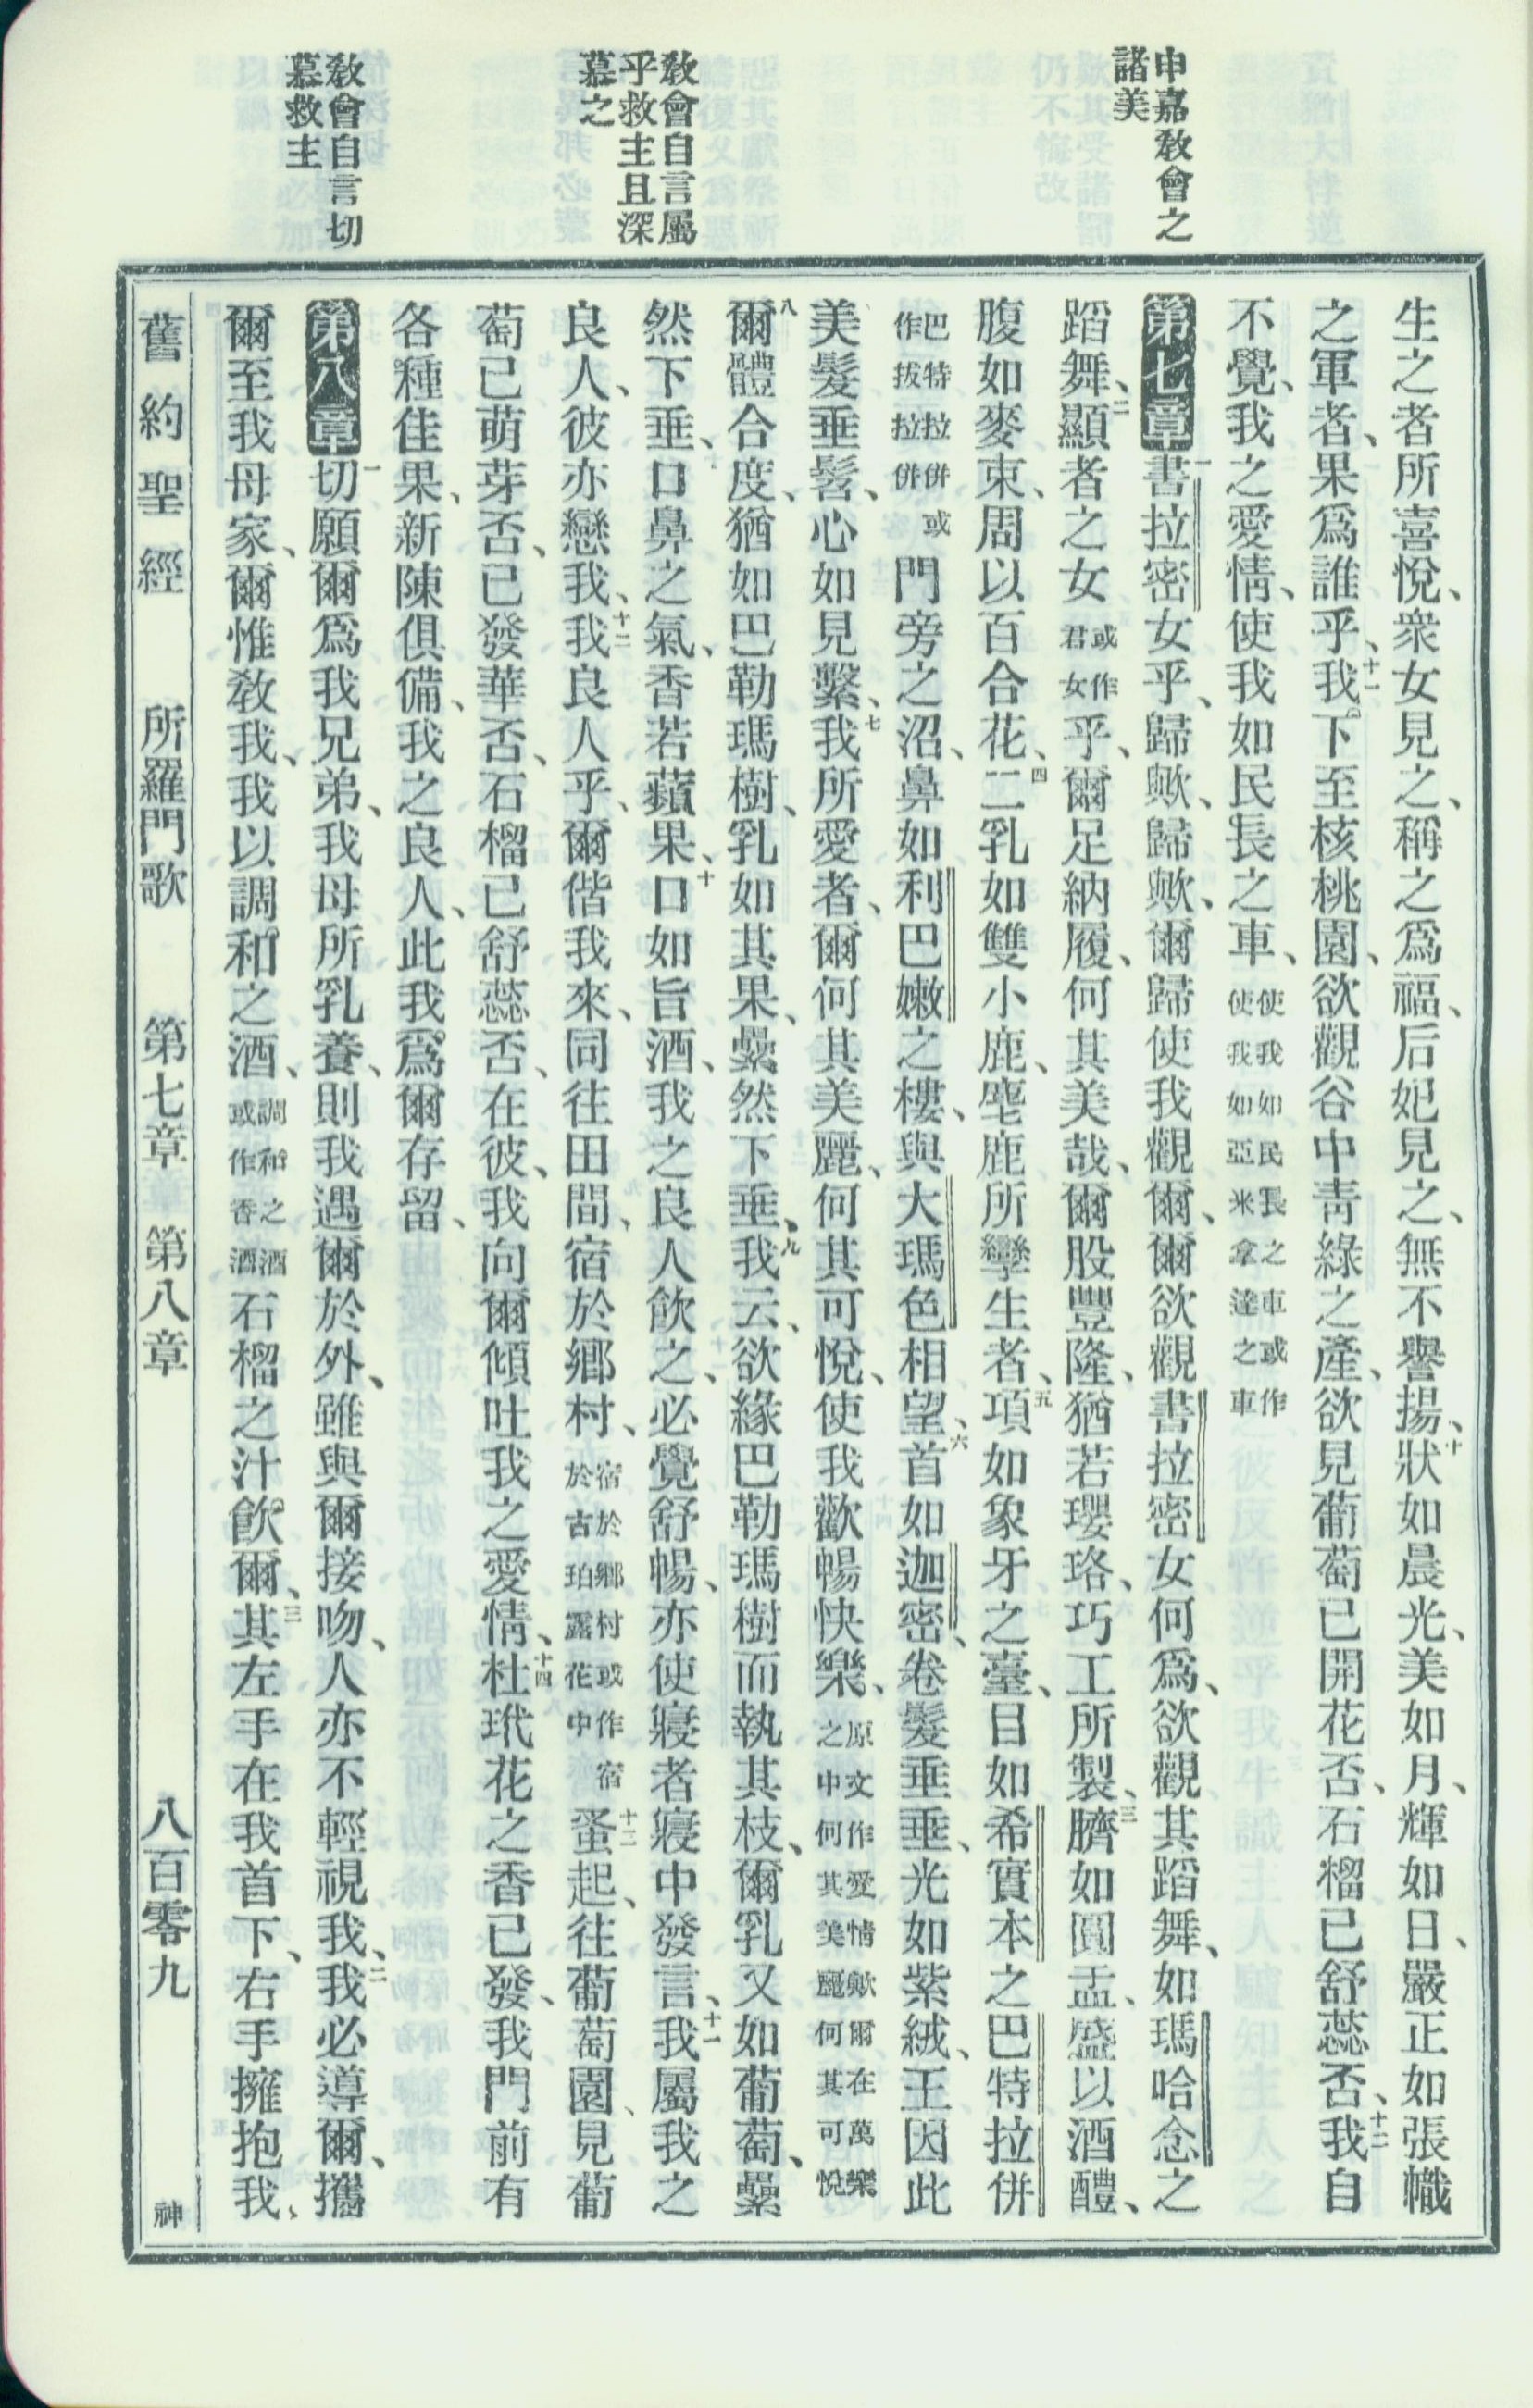 申嘉敎會之
諸美
敎會自言屬
乎救主且深
慕之
敎會自言切
慕救主
生之者所喜悅、衆女見之、稱之爲福、后妃見之、無不譽揚、十狀如晨光、美如月、輝如日、嚴正如張幟
之軍者、果爲誰乎、十一我下至核桃園、欲觀谷中靑綠之產、欲見葡萄已開花否、石榴已舒蕊否、十二我自
不覺、我之愛情、使我如民長之車、使我如民長之車或作使我如亞米拿達之車
第七章一書拉密女乎、歸歟、歸歟、爾歸使我觀爾、爾欲觀書拉密女何爲、欲觀其蹈舞、如瑪哈念之
蹈舞、二顯者之女或作君女乎、爾足納履、何其美哉、爾股豐隆、猶若瓔珞、巧工所製、三臍如圓盂、盛以酒醴、
腹如麥束、周以百合花、四二乳如雙小鹿、麀鹿所孿生者、五項如象牙之臺、目如希實本之巴特拉併
巴特拉併或作拔拉併門旁之沼、鼻如利巴嫩之樓、與大瑪色相望、六首如迦密、卷髮垂垂、光如紫絨、王因此
美髮垂髫、心如見繫、七我所愛者、爾何其美麗、何其可悅、使我歡暢快樂、原文作愛情歟爾在萬樂之中何其美麗何其可悅
八爾體合度、猶如巴勒瑪樹、乳如其果、纍然下垂、九我云、欲緣巴勒瑪樹而執其枝、爾乳又如葡萄、纍
然下垂、口鼻之氣、香若蘋果、十口如旨酒、我之良人飮之、必覺舒暢、亦使寢者寢中發言、十一我屬我之
良人、彼亦戀我、十二我良人乎、爾偕我來、同往田間、宿於鄉村、宿於鄉村或作宿於古珀露花中十三蚤起、往葡萄園、見葡
萄已萌芽否、已發華否、石榴已舒蕊否、在彼、我向爾傾吐我之愛情、十四杜玳花之香已發、我門前有
各種佳果、新陳俱備、我之良人、此我爲爾存留、
第八章一切願爾爲我兄弟、我母所乳養、則我遇爾於外、雖與爾接吻、人亦不輕視我、二我必導爾、攜
爾至我母家、爾惟敎我、我以調和之酒、調和之酒或作香酒石榴之汁飮爾、三其左手在我首下、右手擁抱我、
舊約聖經 所羅門歌 第七章 第八章 八百零九 神